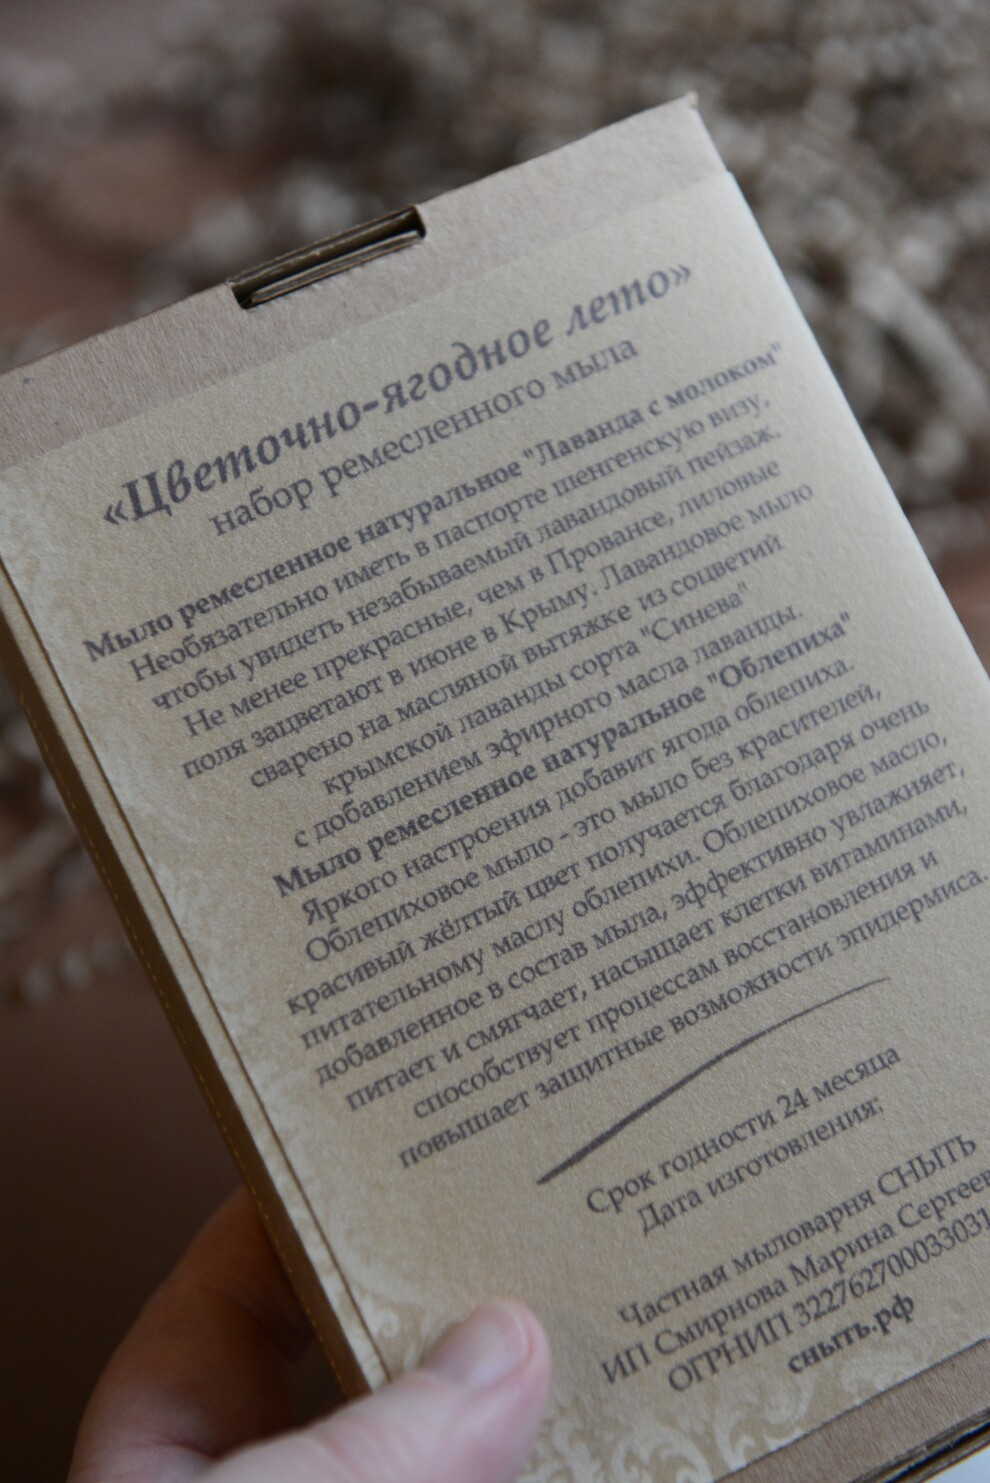 «Цветочно-ягодное лето»
набор ремесленного мыла
Мыло ремесленное натуральное "Лаванда с молоком"
Необязательно иметь в паспорте шенгенскую визу,
чтобы увидеть незабываемый лавандовый пейзаж.
Не менее прекрасные, чем в Провансе, лиловые
поля зацветают в июне в Крыму. Лавандовое мыло
сварено на масляной вытяжке из соцветий
крымской лаванды сорта "Синева"
с добавлением эфирного масла лаванды.
Мыло ремесленное натуральное "Облепиха"
Яркого настроения добавит ягода облепиха.
Облепиховое мыло - это мыло без красителей,
красивый жёлтый цвет получается благодаря очень
питательному маслу облепихи. Облепиховое масло,
добавленное в состав мыла, эффективно увлажняет,
питает и смягчает, насыщает клетки витаминами,
способствует процессам восстановления и
повышает защитные возможности эпидермиса.
Срок годности 24 месяца
Дата изготовления:
Частная мыловарня СНЫТЬ
ИП Смирнова Марина
ОГРНИП
сныть.рф